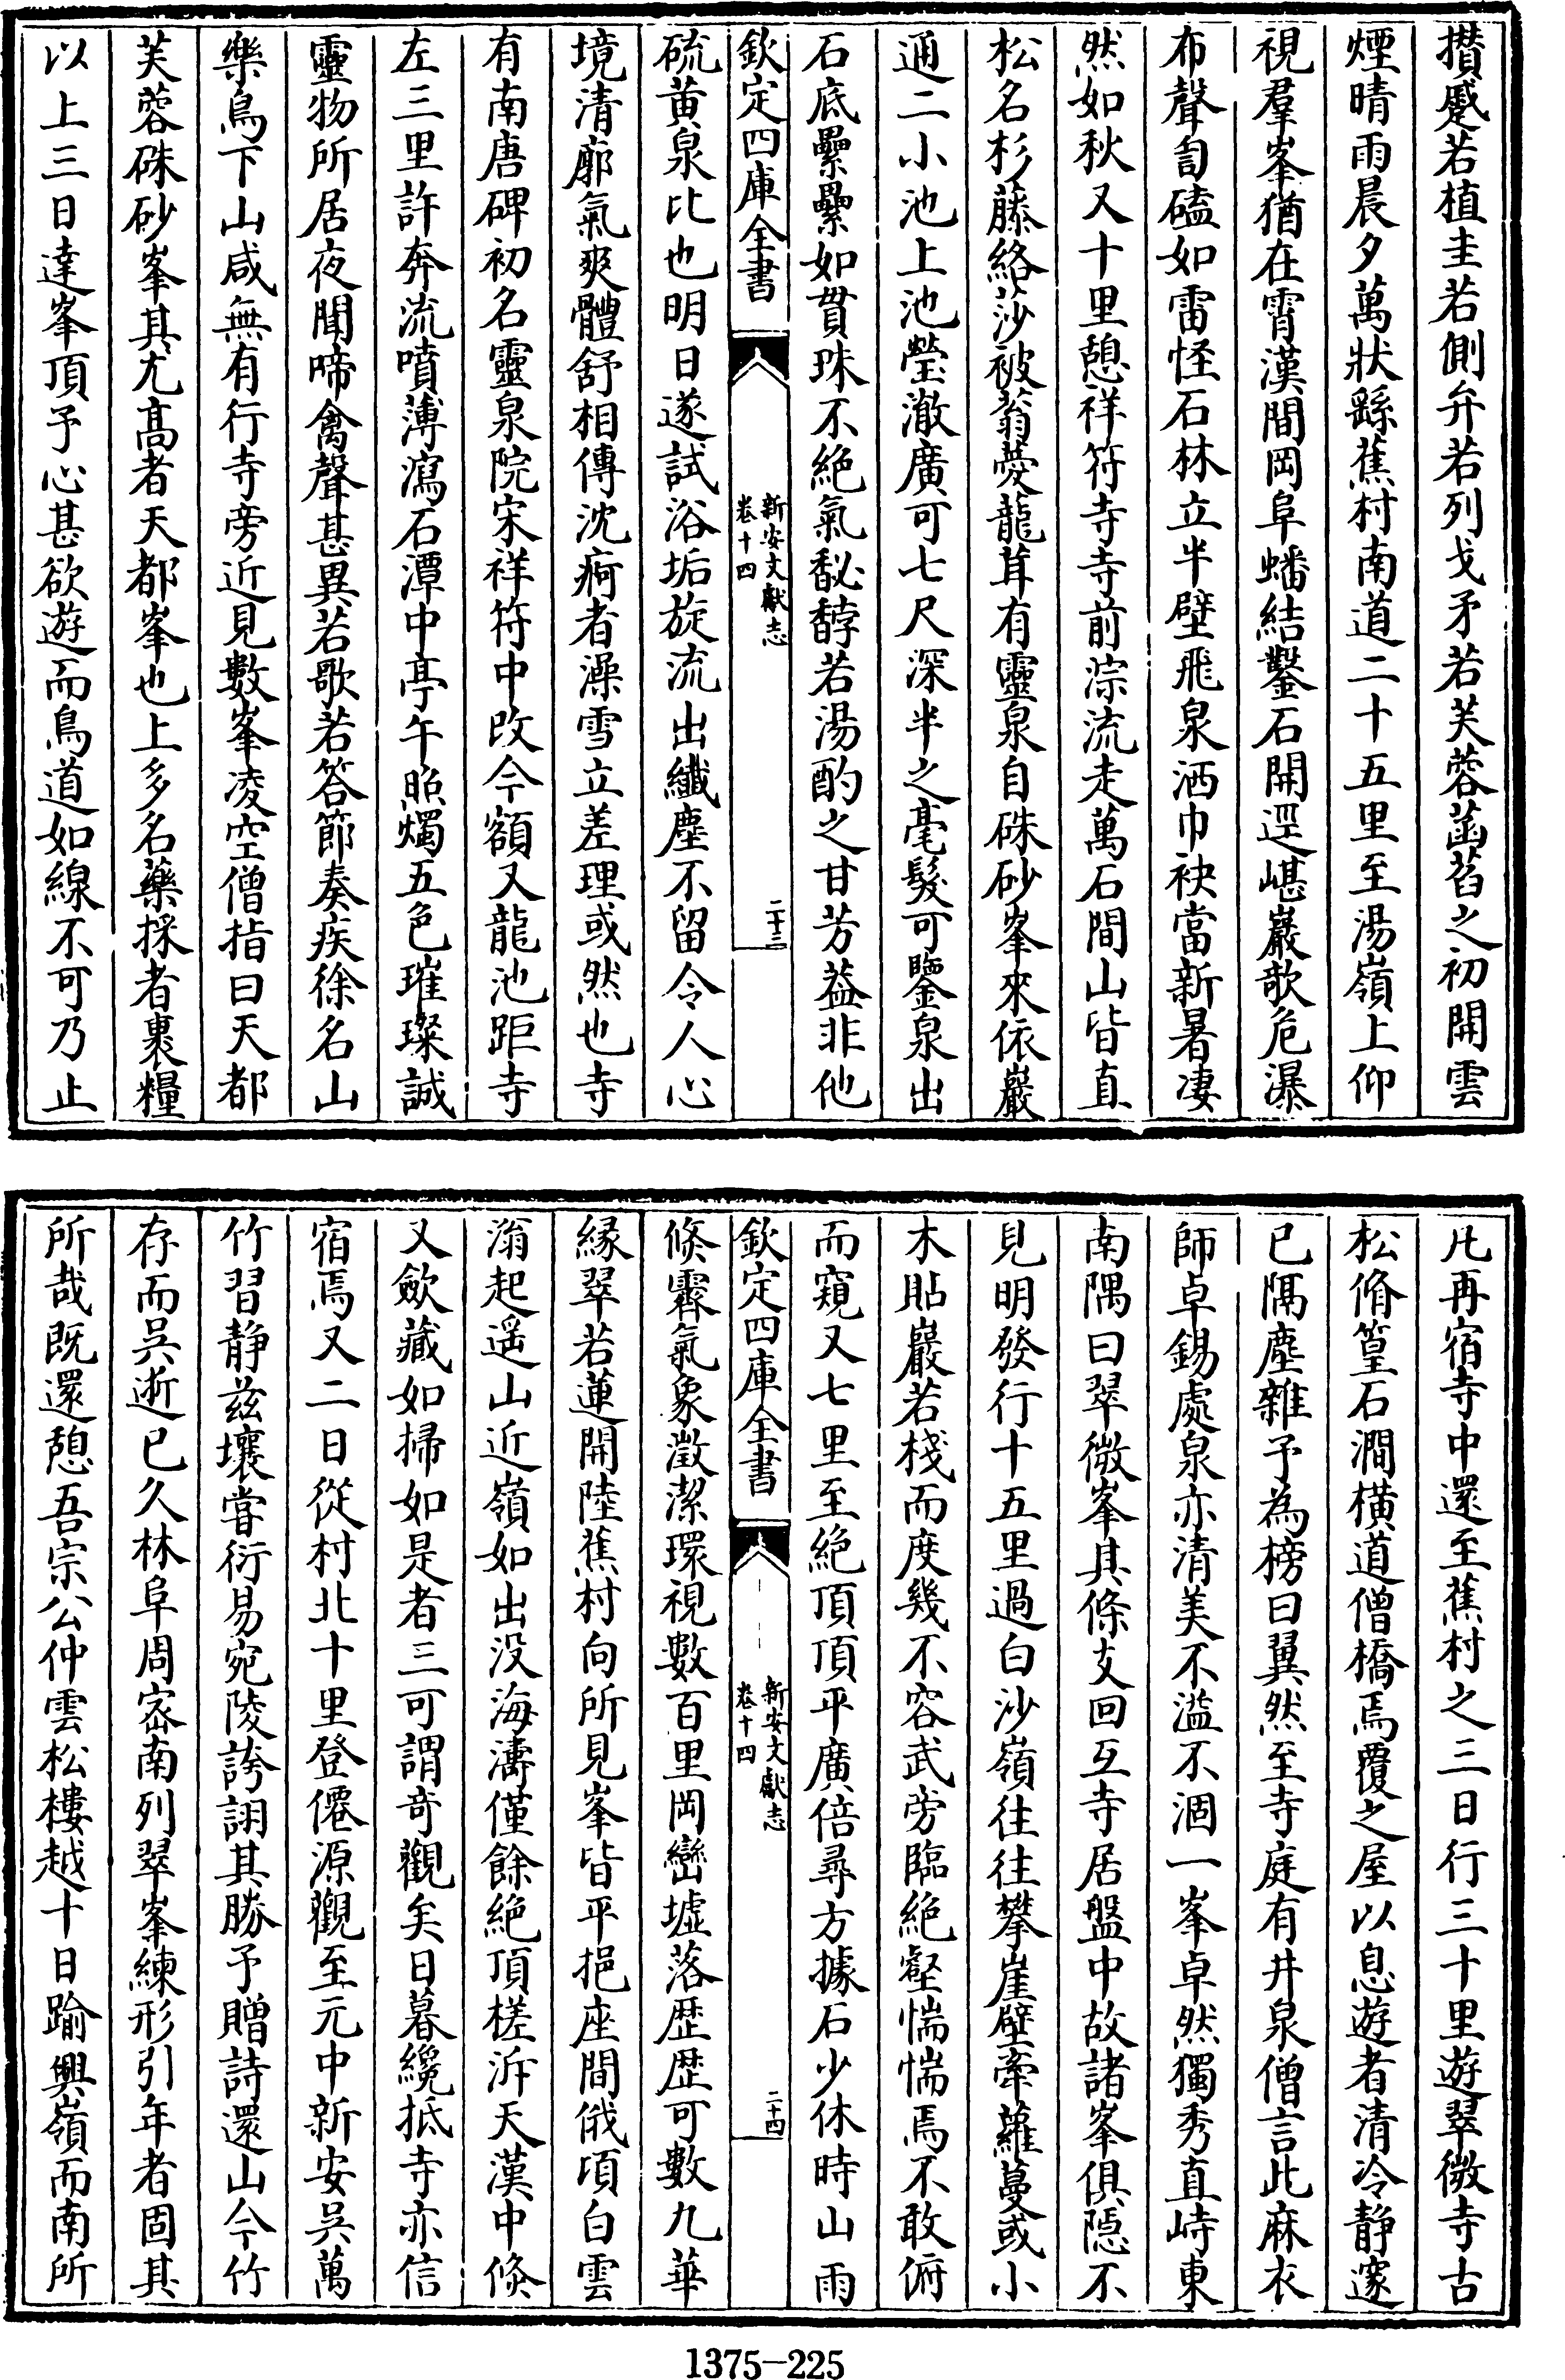 攅蹙若植圭若側弁若列戈矛若芙蓉菡萏之初開雲
煙晴雨晨夕萬狀繇蕉村南道二十五里至湯嶺上仰
視羣峯猶在霄漢間岡阜蟠結鑿石開逕嵁巖欹危瀑
布聲訇磕如雷怪石林立半壁飛泉洒巾袂當新暑凄
然如秋又十里憩祥符寺寺前淙流走萬石間山皆直
松名杉藤絡莎被蓊薆蘢茸有靈泉自硃砂峯來依巖
通二小池上池瑩澈廣可七尺深半之毫髮可鑒泉出
石底纍纍如貫珠不絶氣馝馞若湯酌之甘芳葢非他
欽定四庫全書
新安文獻志
卷十四
二十三
硫黄泉比也明日遂試浴垢旋流出纎塵不留令人心
境清廓氣爽體舒相傳沈痾者澡雪立差理或然也寺
有南唐碑初名靈泉院宋祥符中改今額又龍池距寺
左三里許奔流噴薄瀉石潭中亭午照燭五色璀璨誠
靈物所居夜聞啼禽聲甚異若歌若答節奏疾徐名山
樂鳥下山咸無有行寺旁近見數峯凌空僧指曰天都
芙蓉硃砂峯其尤髙者天都峯也上多名藥採者裹糧
以上三日達峯頂予心甚欲遊而鳥道如線不可乃止
凡再宿寺中還至蕉村之三日行三十里遊翠微寺古
松脩篁石澗横道僧橋焉覆之屋以息遊者清泠静邃
已隔塵雜予為榜曰翼然至寺庭有井泉僧言此麻衣
師卓錫處泉亦清美不溢不涸一峯卓然獨秀直峙東
南隅曰翠微峯其條支回互寺居盤中故諸峯俱隠不
見明發行十五里過白沙嶺往往攀崖壁牽蘿蔓或小
木貼巖若棧而度幾不容武旁臨絶壑惴惴焉不敢俯
而窺又七里至絶頂頂平廣倍尋方據石少休時山雨
欽定四庫全書
新安文獻志
卷十四
二十四
倐霽氣象澂潔環視數百里岡巒墟落歴歴可數九華
緣翠若蓮開陸蕉村向所見峯皆平挹座間俄頃白雲
滃起遥山近嶺如出没海濤僅餘絶頂槎泝天漢中倐
又歛藏如掃如是者三可謂奇觀矣日暮纔抵寺亦信
宿焉又二日從村北十里登僊源觀至元中新安吳萬
竹習静兹壤嘗衍易宛陵誇詡其勝予贈詩還山今竹
存而吳逝已久林阜周宻南列翠峯練形引年者固其
所哉既還憩吾宗公仲雲松樓越十日踰興嶺而南所
1375-225